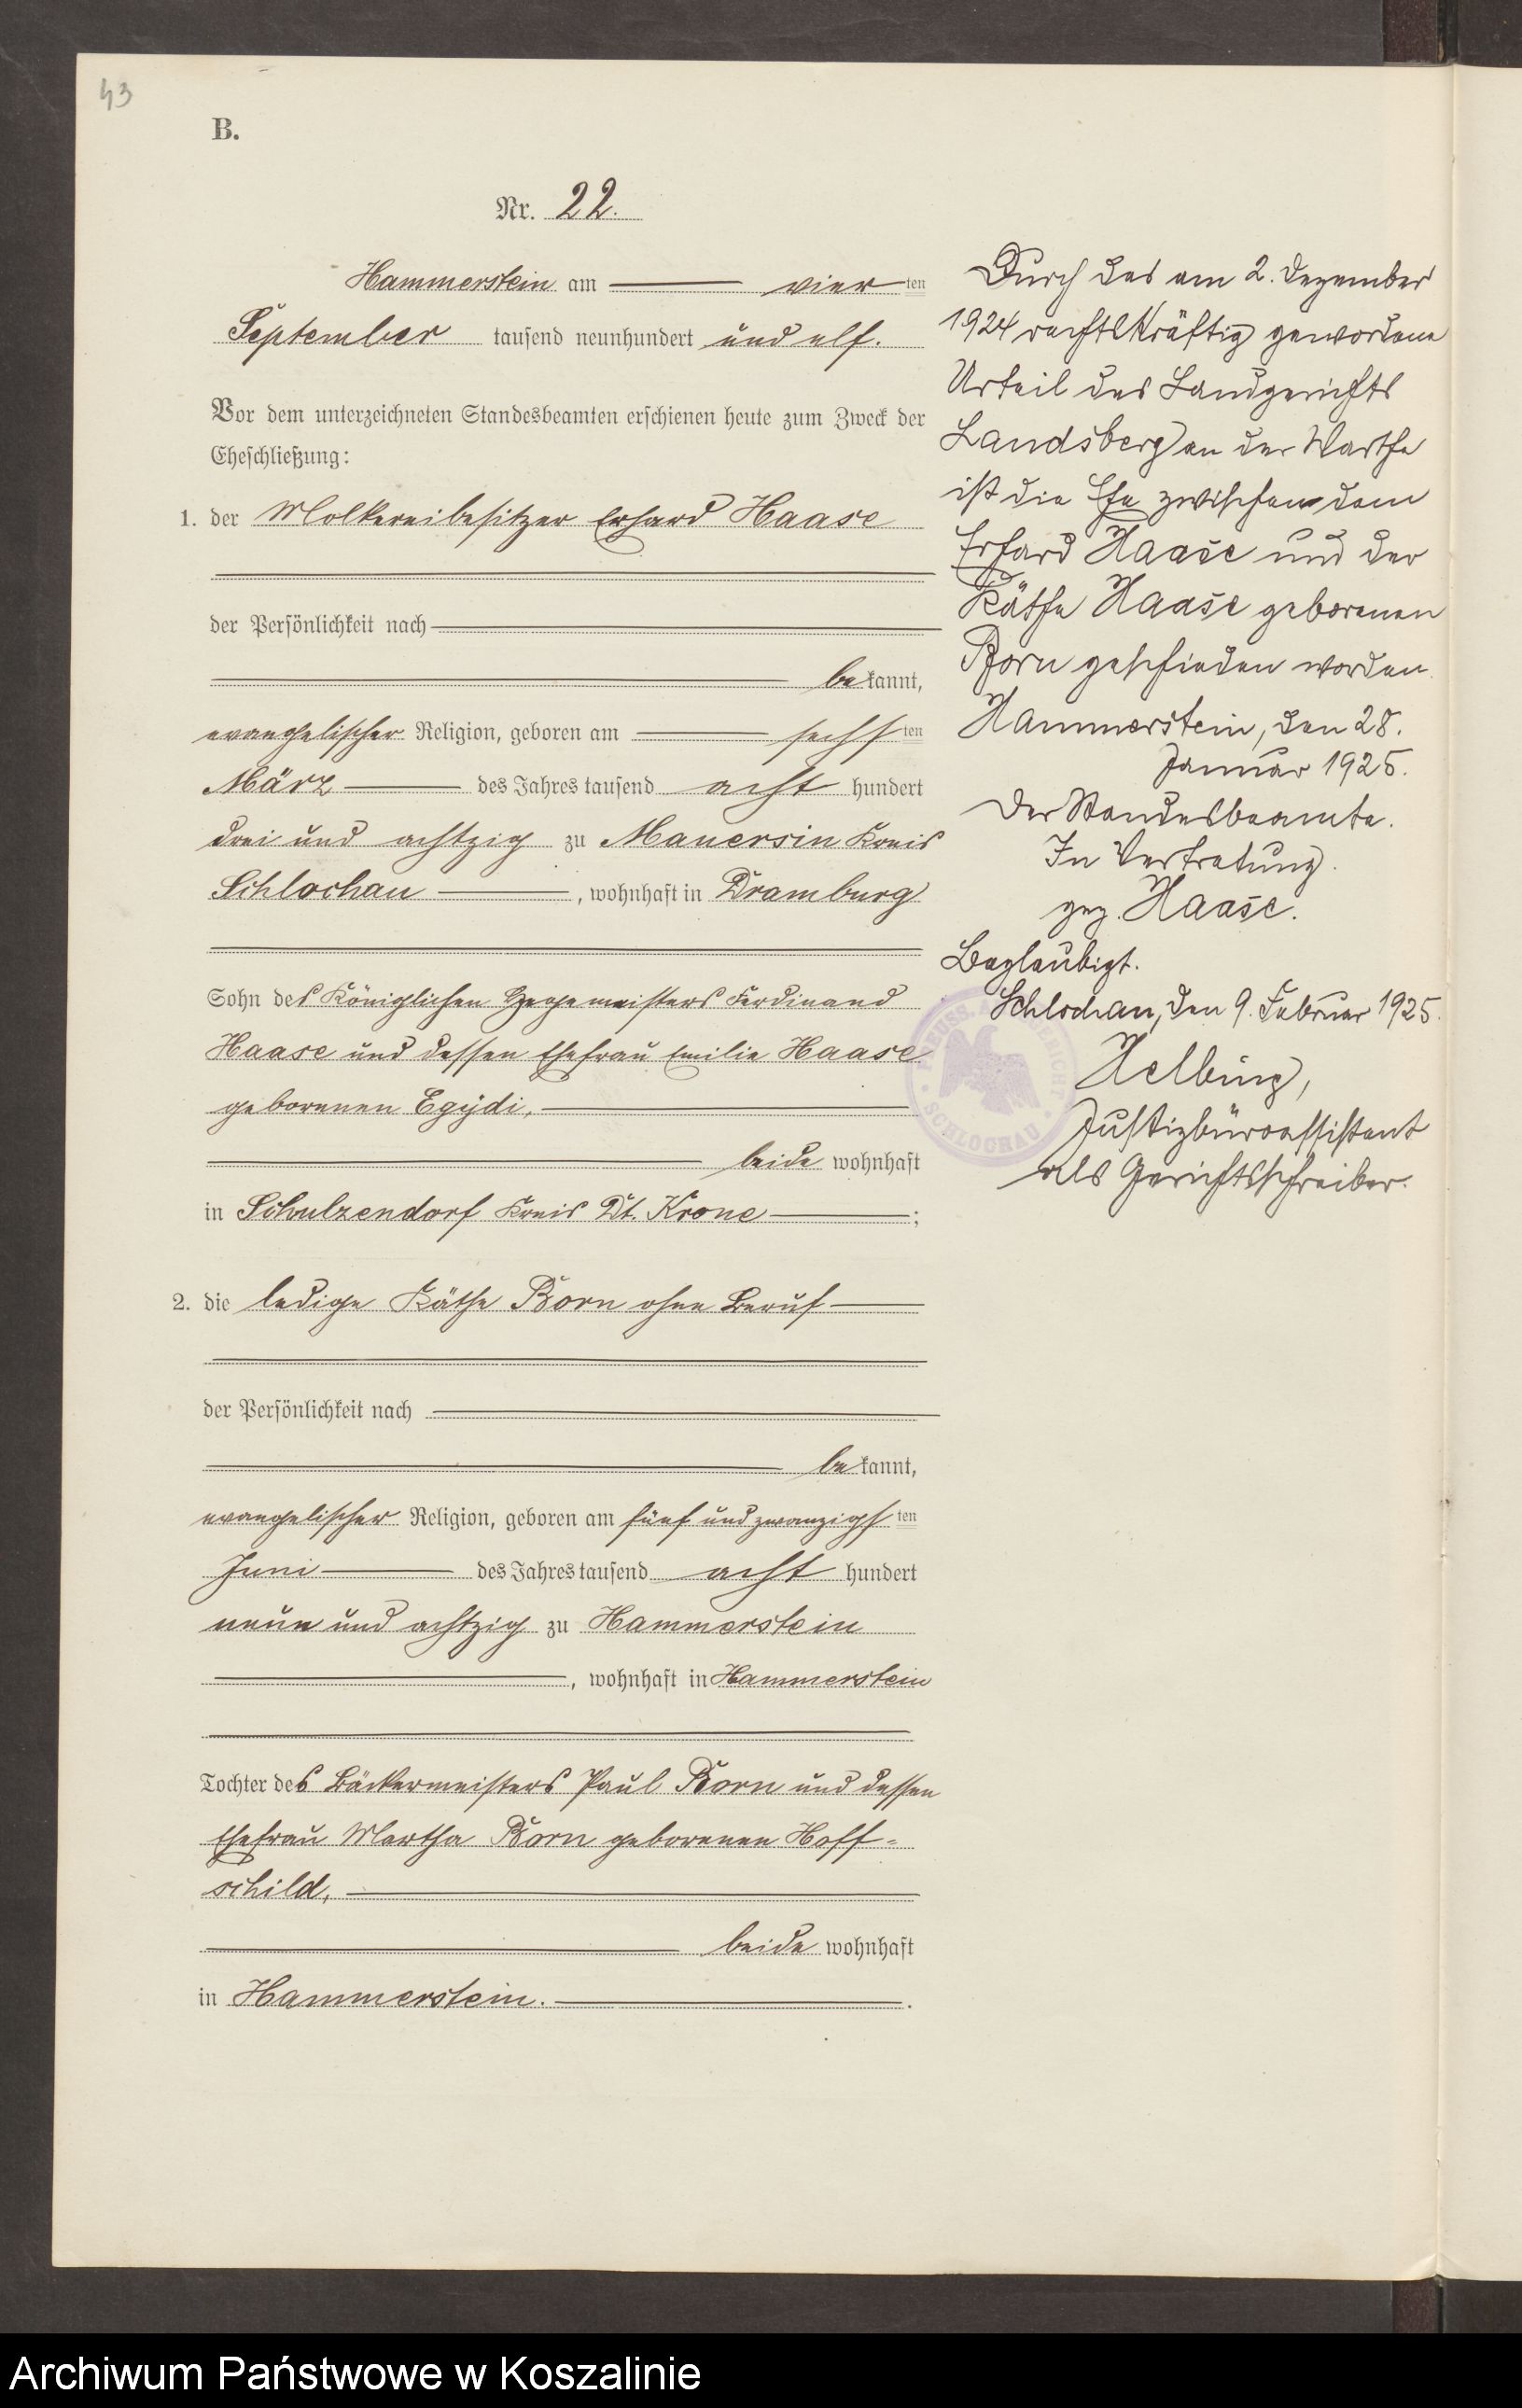 43
B.
Nr. 22.
Hammerstein am vierten
September tausend neunhundert und elf.
Vor dem unterzeichneten Standesbeamten erschienen heute zum Zweck der
Eheschließung:
1. der Molkereibesitzer Erhard Haase
der Persönlichkeit nach
bekannt,
evangelischer Religion, geboren am sechsten
März des Jahres tausend acht hundert
drei und achtzig zu Manersin Kreis
Schlochau, wohnhaft in Dramburg
Sohn des Königlichen Hegemeisters Ferdinand
Haase und dessen Ehefrau Emilie Haase
geborenen Egÿdi,
beide wohnhaft
in Schulzendorf Kreis Dt. Krone;
2. die ledige Käthe Born ohne Beruf
der Persönlichkeit nach
bekannt,
evangelischer Religion, geboren am fünf und zwanzigsten
Juni des Jahres tausend acht hundert
neun und achtzig zu Hammerstein
, wohnhaft in Hammerstein
Tochter des Bäckermeisters Paul Born und dessen
Ehefrau Martha Born geborenen Hoff-
schild,
beide wohnhaft
in Hammerstein.
Durch das am 2. Dezember
1924 rechtskräftig gewordene
Urteil des Landgerichts
Landsberg an der Warthe
ist die Ehe zwischen dem
Erhard Haase und der
Käthe Haase geborenen
Born geschieden worden.
Hammerstein, den 28.
Januar 1925.
Der Standesbeamte.
In Vertretung.
gez. Haase.
Beglaubigt.
Schlochau, den 9. Februar 1925.
Helbing,
Justizbüroassistent
als Gerichtsschreiber.
PREUSS. AMTSGERICHT
SCHLOCHAU
Archiwum Państwowe w Koszalinie